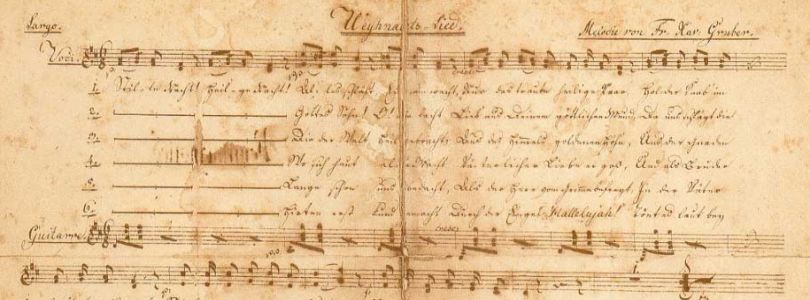 Largo. Weyhnachts-Lied. Melodie von Fr. Xav. Gruber.
cresc.
1. Stil-le Nacht! Heil-ge Nacht! Al-les schläft, Ein-sam wacht, Nur das traute heilige Paar. Holder Knab im
2. Gottes Sohn! O! wie lacht Lieb aus Deinem göttlichen Mund, Da uns schlägt die
3. Die der Welt Heil gebracht; Aus des Himmels goldenen Höhn, Aus der Gnaden
4. Wo sich heut alle Macht Väterlicher Liebe ergoß, Und als Bruder
5. Lange schon uns bedacht, Als der Herr vom Grimme befreyt, In der Väter
6. Hirten erst kund gemacht Durch der Engel Hallelujah! Tönt es laut bey
Guitarre. cresc.